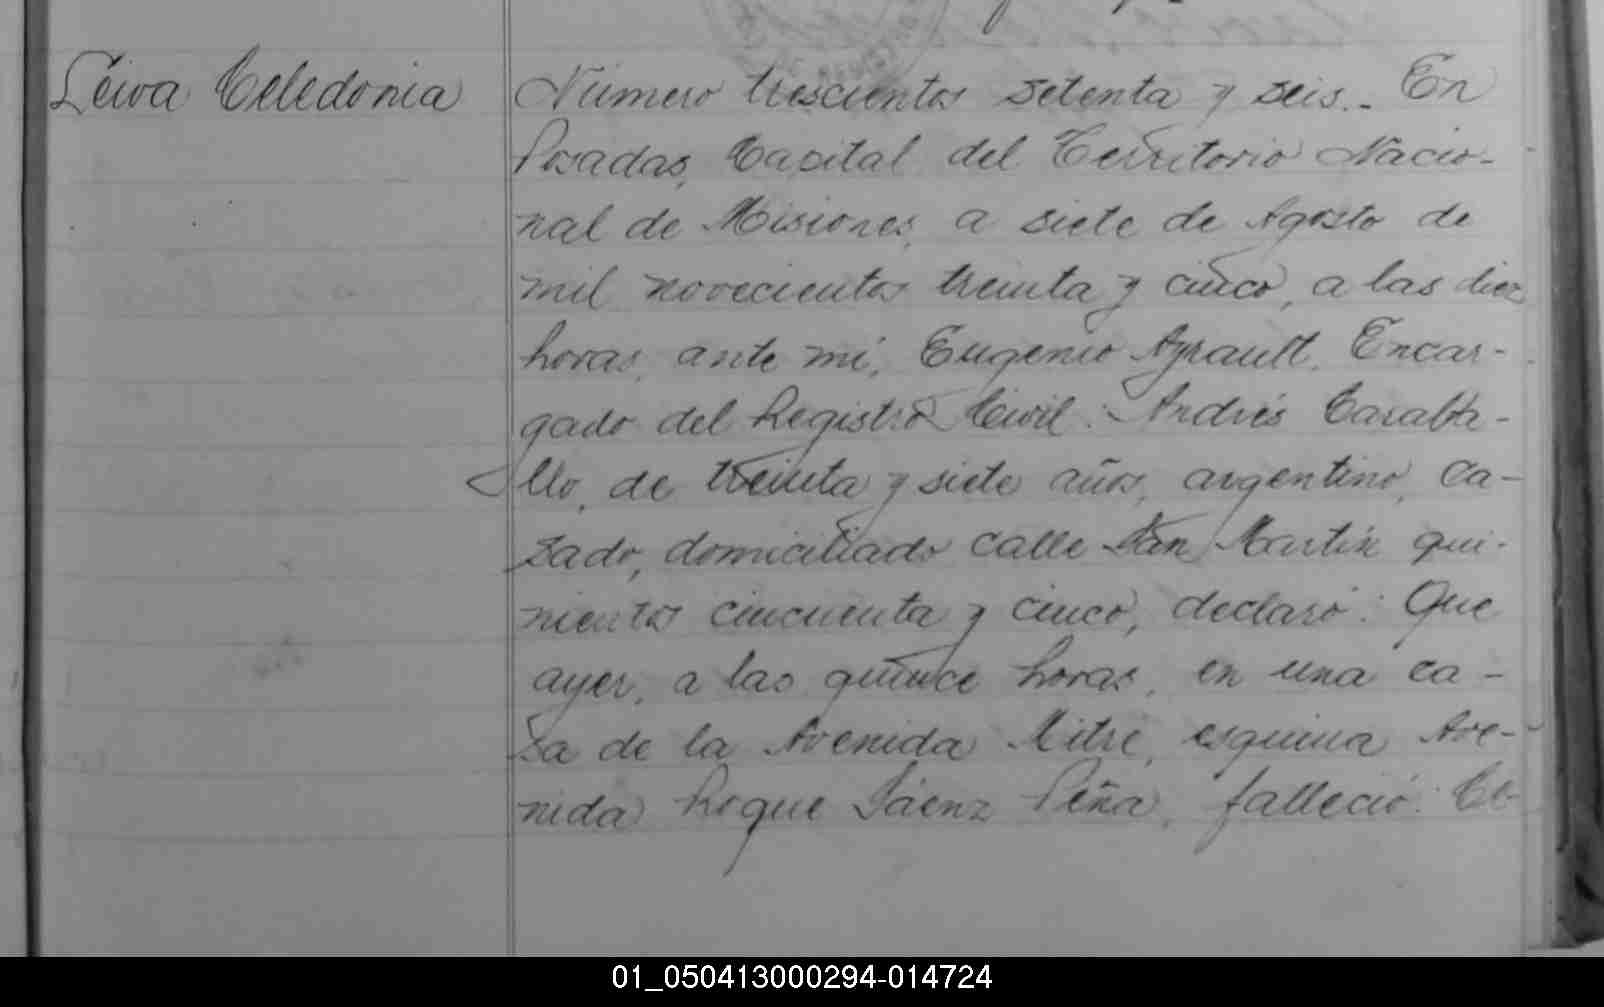 Leiva Celedonia
Número trescientos setenta y seis.- En
Posadas, Capital del Territorio Nacio-
nal de Misiones, a siete de Agosto de
mil novecientos treinta y cinco, a las diez
horas, ante mí, Eugenio Ayrault, Encar-
gado del Registro Civil: Andrés Caraba-
llo, de treinta y siete años, argentino, ca-
sado, domiciliado calle San Martín qui-
nientos cincuenta y cinco, declaró: Que
ayer, a las quince horas, en una ca-
sa de la Avenida Mitre, esquina Ave-
nida Roque Sáenz Peña, falleció: Ce-
01_050413000294-014724